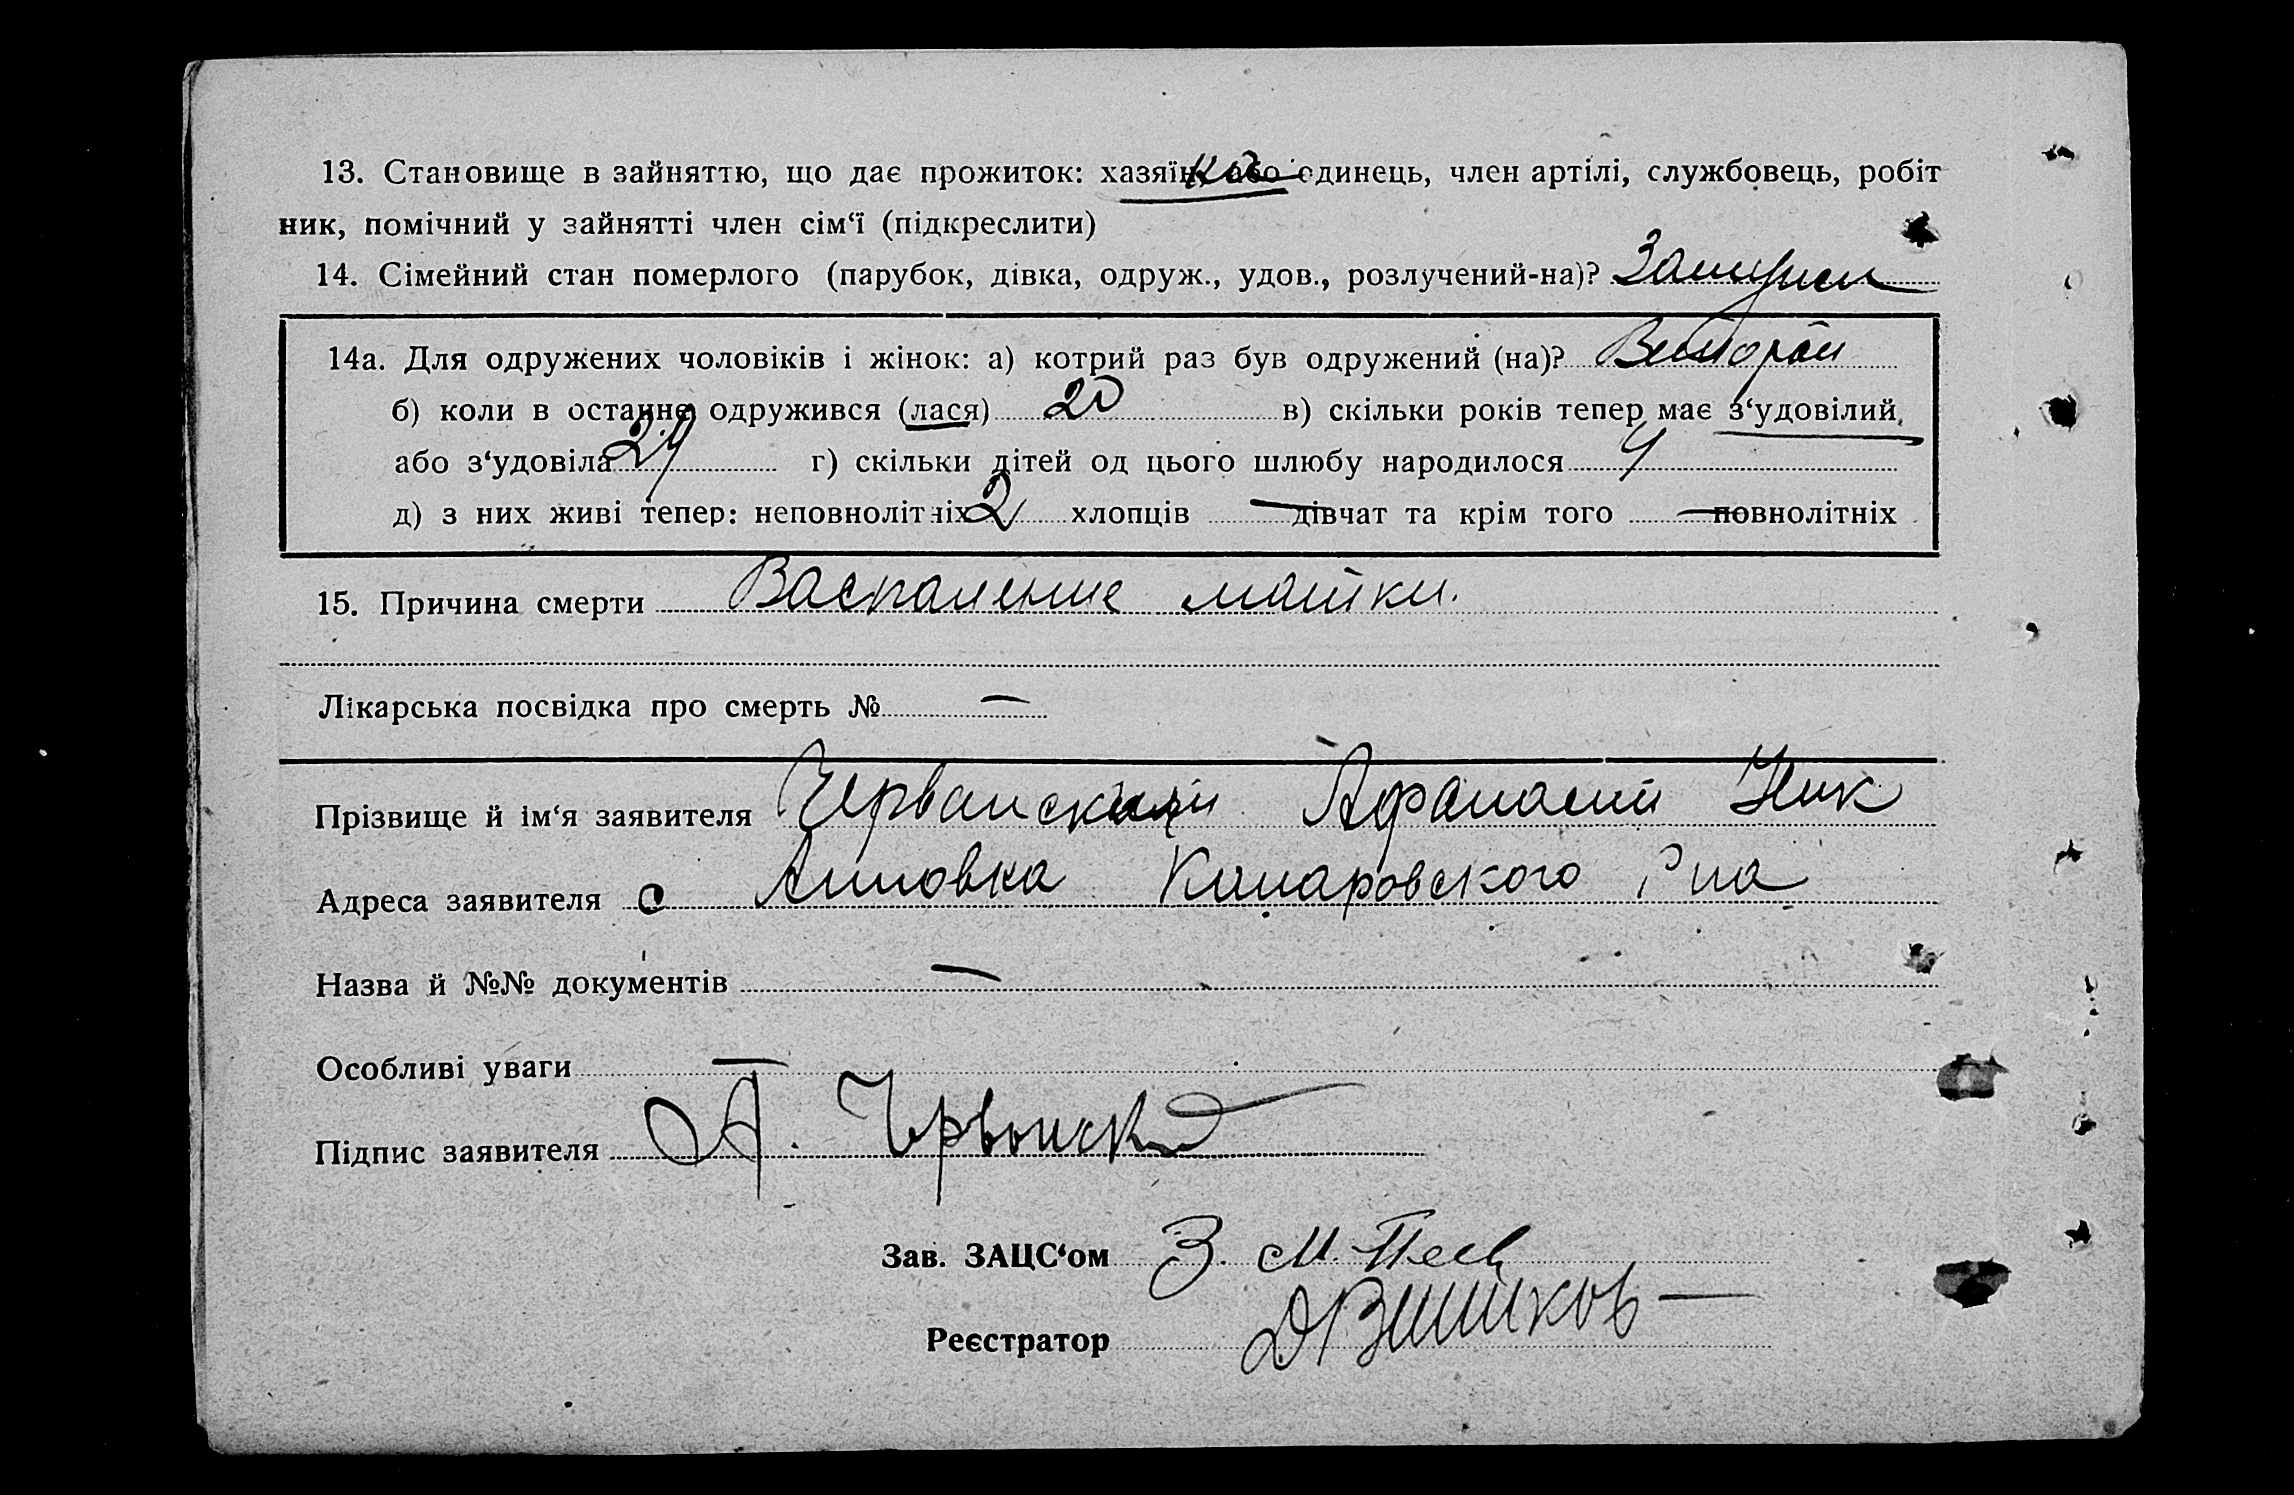 13. Становище в зайняттю, що дає прожиток: хазяїн, або одинець, член артілі, службовець, робіт
ник, помічний у зайнятті член сім‘ї (підкреслити)
14. Сімейний стан померлого (парубок, дівка, одруж., удов., розлучений-на)?
14а. Для одружених чоловіків і жінок: а) котрий раз був одружений (на)? Второй
б) коли в останнє одружився (лася) 20 в) скільки років тепер має з‘удовілий,
або з‘удовіла 24 г) скільки дітей од цього шлюбу народилося 4
д) з них живі тепер: неповнолітніх 2 хлопців — дівчат та крім того — повнолітніх
15. Причина смерти Васпаление матки.
Лікарська посвідка про смерть № —
Прізвище й ім‘я заявителя Червански Афанасий Ник
Адреса заявителя с Анновка Камаровского Рна
Назва й №№ документів —
Особливі уваги —
Підпис заявителя А. Червонск
Зав. ЗАЦС‘ом З. М.
Реєстратор